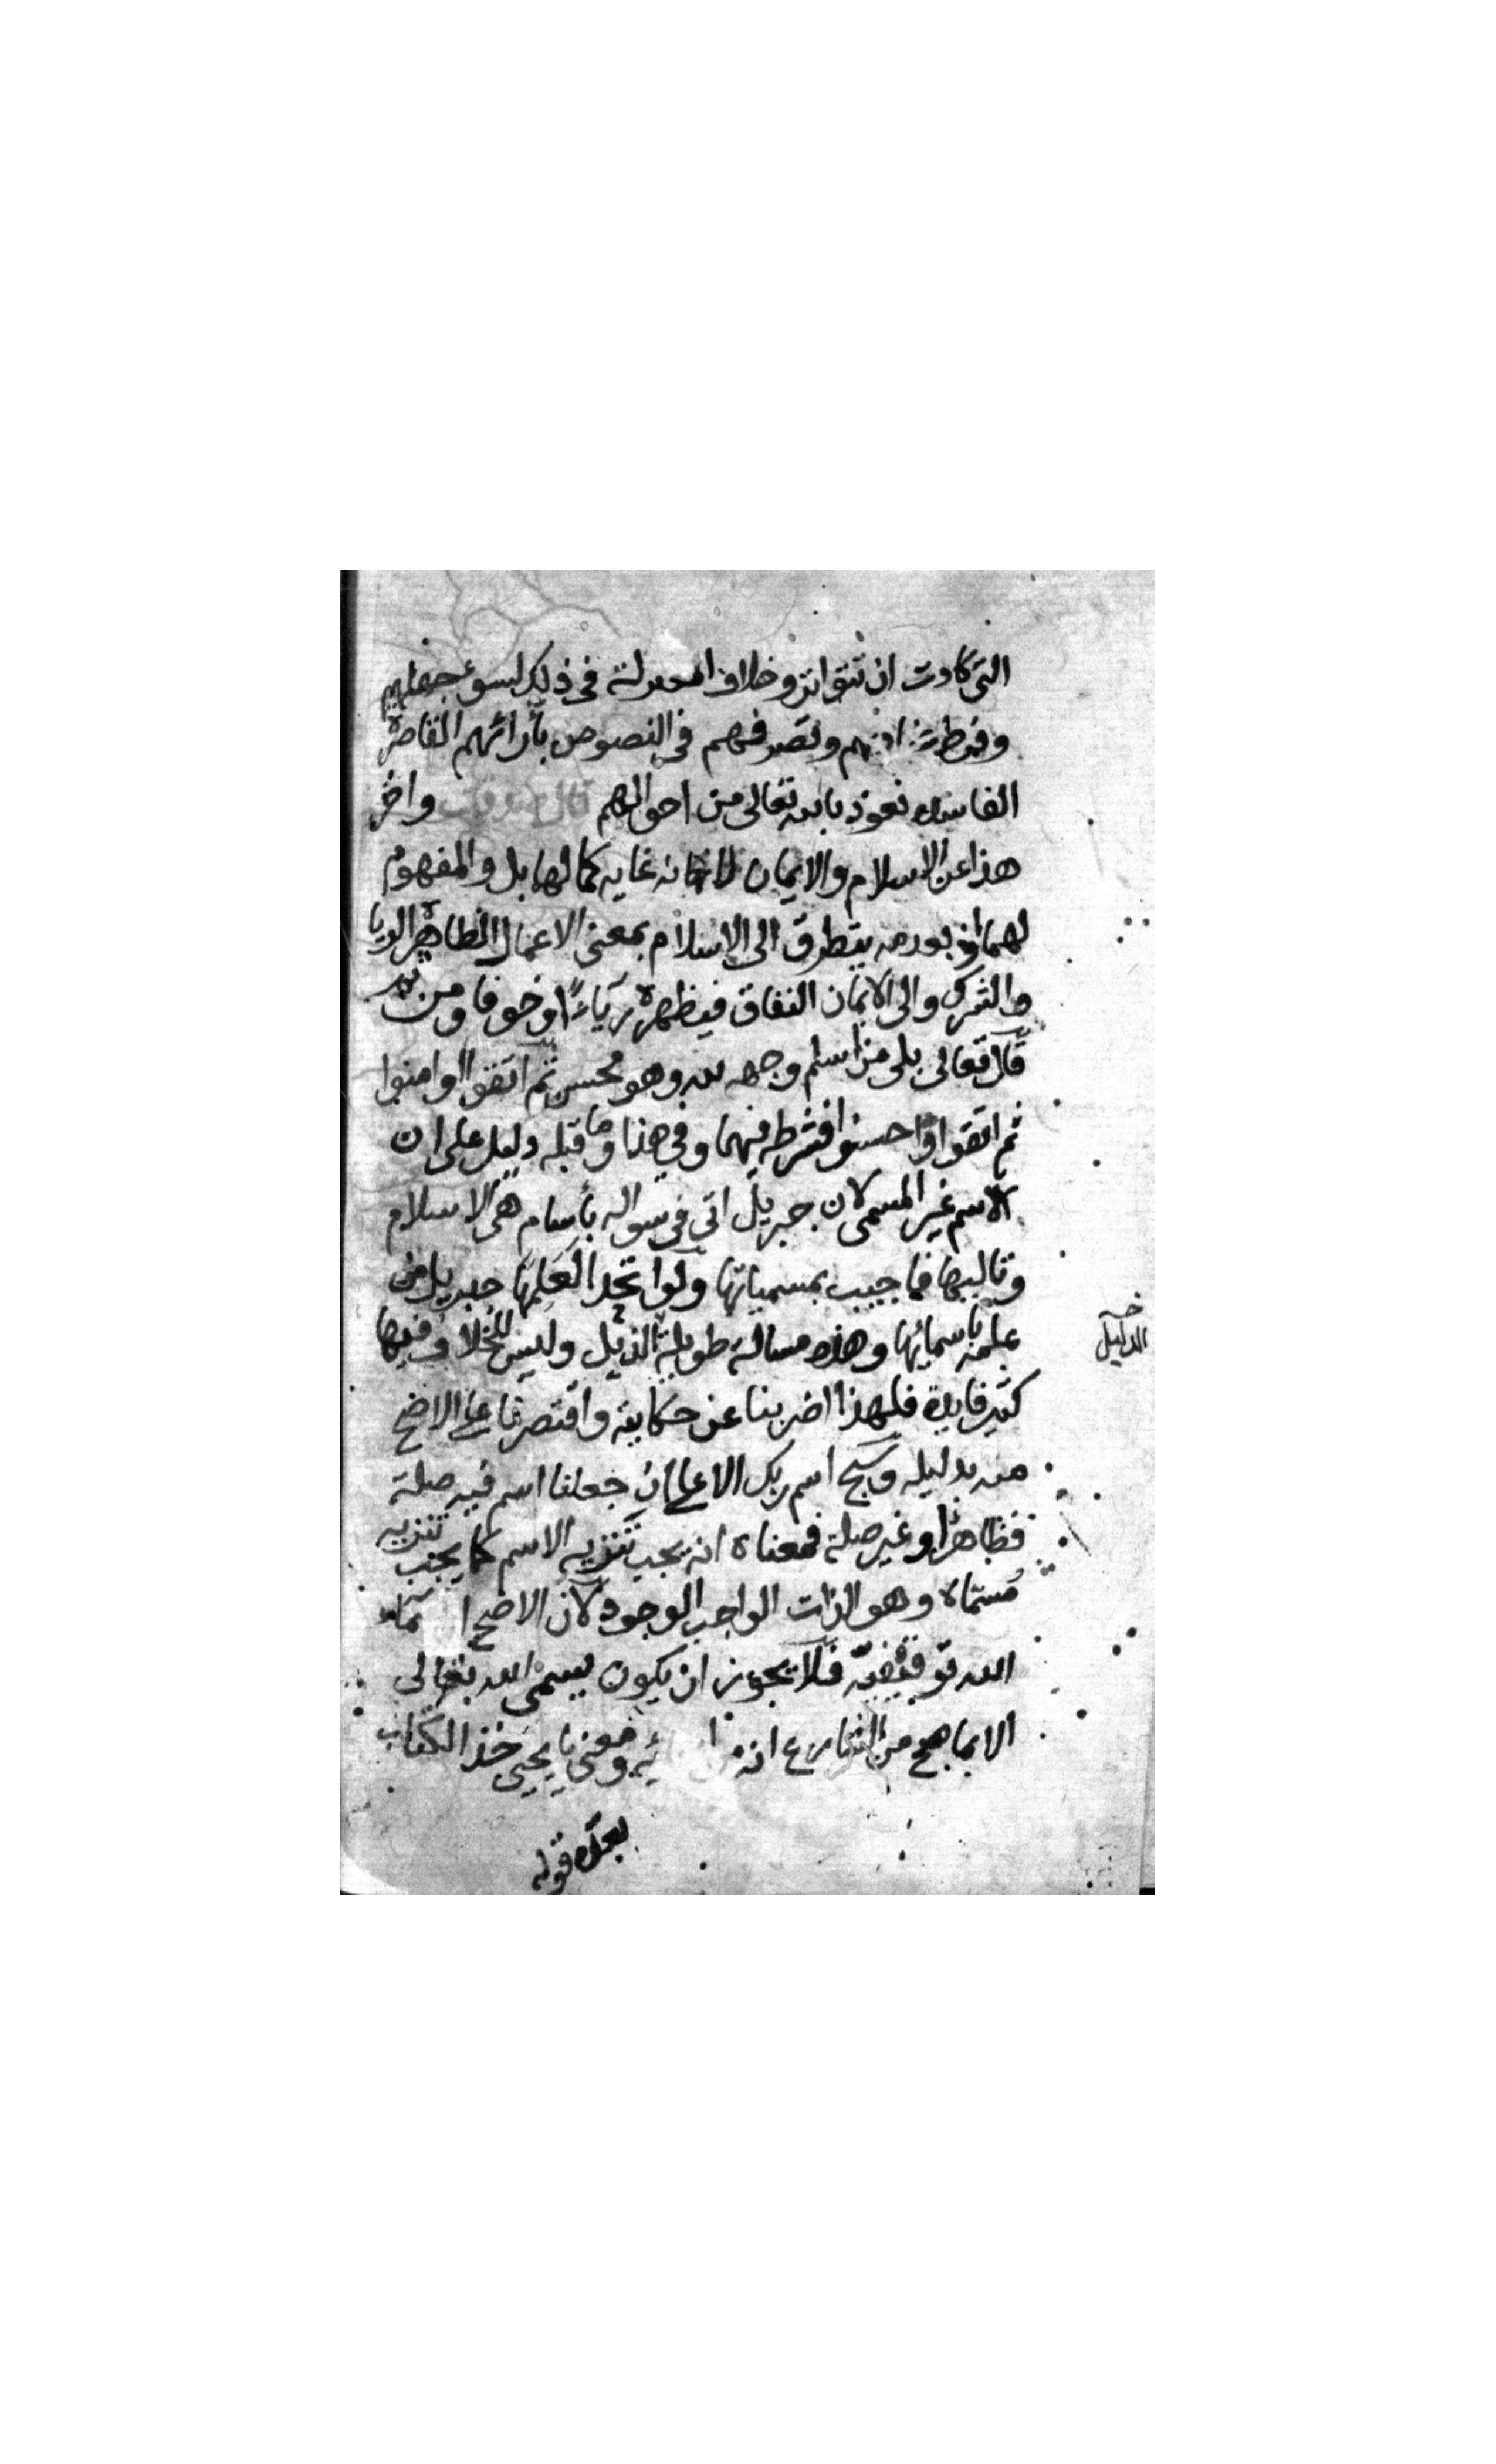 التي كادت ان تتواتر وخلاف المعتزلة في ذلك لسوء جهلهم
وفرط وتصرفهم في النصوص بآرائهم القاصرة
الفاسدة نعوذ بالله تعالى من احوالهم واخر
هذا عن الاسلام والايمان لانه غاية كمالها بل والمفهوم
لهما اذ بعدمه يتطرق الى الاسلام بمعنى الاعمال الظاهرة الريا
والشرك والى الايمان النفاق فيظهره رياءً او خوفا ومن ثم
قال تعالى بلى من اسلم وجهه لله وهو محسن ثم اتقوا وامنوا
ثم اتقوا واحسنوا فشرطه فيهما وفي هذا وما قبله دليل على ان
الاسم غير المسمى لان جبريل اتى في سواله باسام هي الاسلام
وتالييها فاجيب بمسمياتها ولو اتحدا لعلمها جبريل من
علمه باسمائها وهذه مسالة طويلة الذيل وليس للخلاف فيها
كثير فايدة فلهذا اضربنا عن حكايته واقتصرنا على الاصح
منه بدليله وسبح اسم ربك الاعلى ان جعلنا اسم فيه صلة
فظاهر او غير صلة فمعناه انه يجب تنزيه الاسم كما يجب تنزيه
مسماه وهو الذات الواجب الوجود لان الاصح ان اسماء
الله توقيفية فلا يجوز ان يكون يسمى الله تعالى
الا بما صح من الشارع انه من اسمائه ومعنى يا يحيى خذ الكتاب
بعده قوله
الدليل